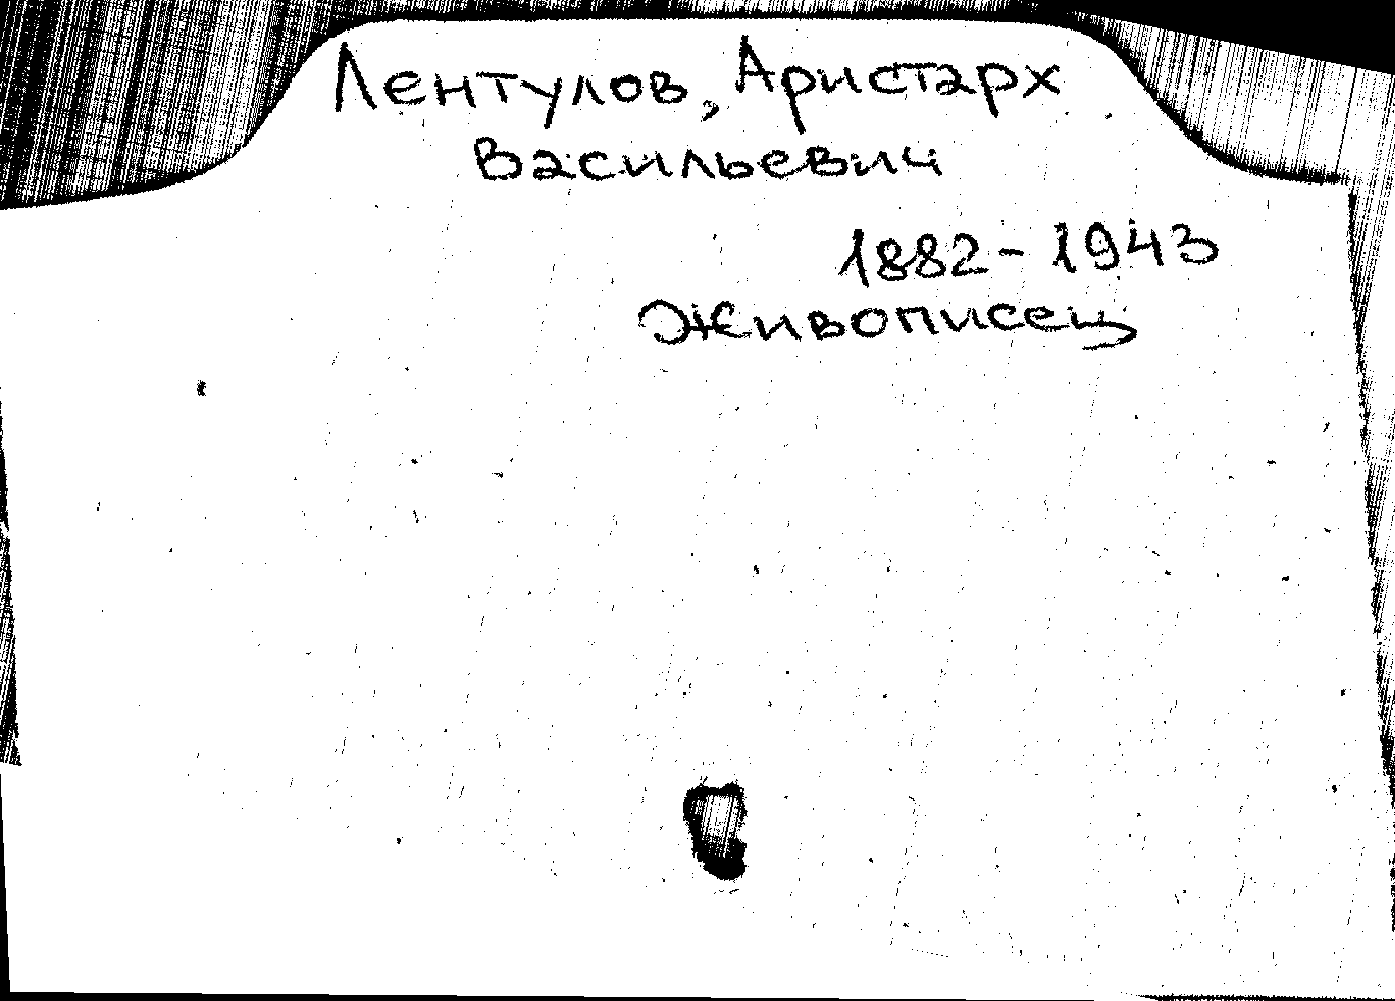 Лентулов, Аристарх
Васильевич
1882-1943
Живописец